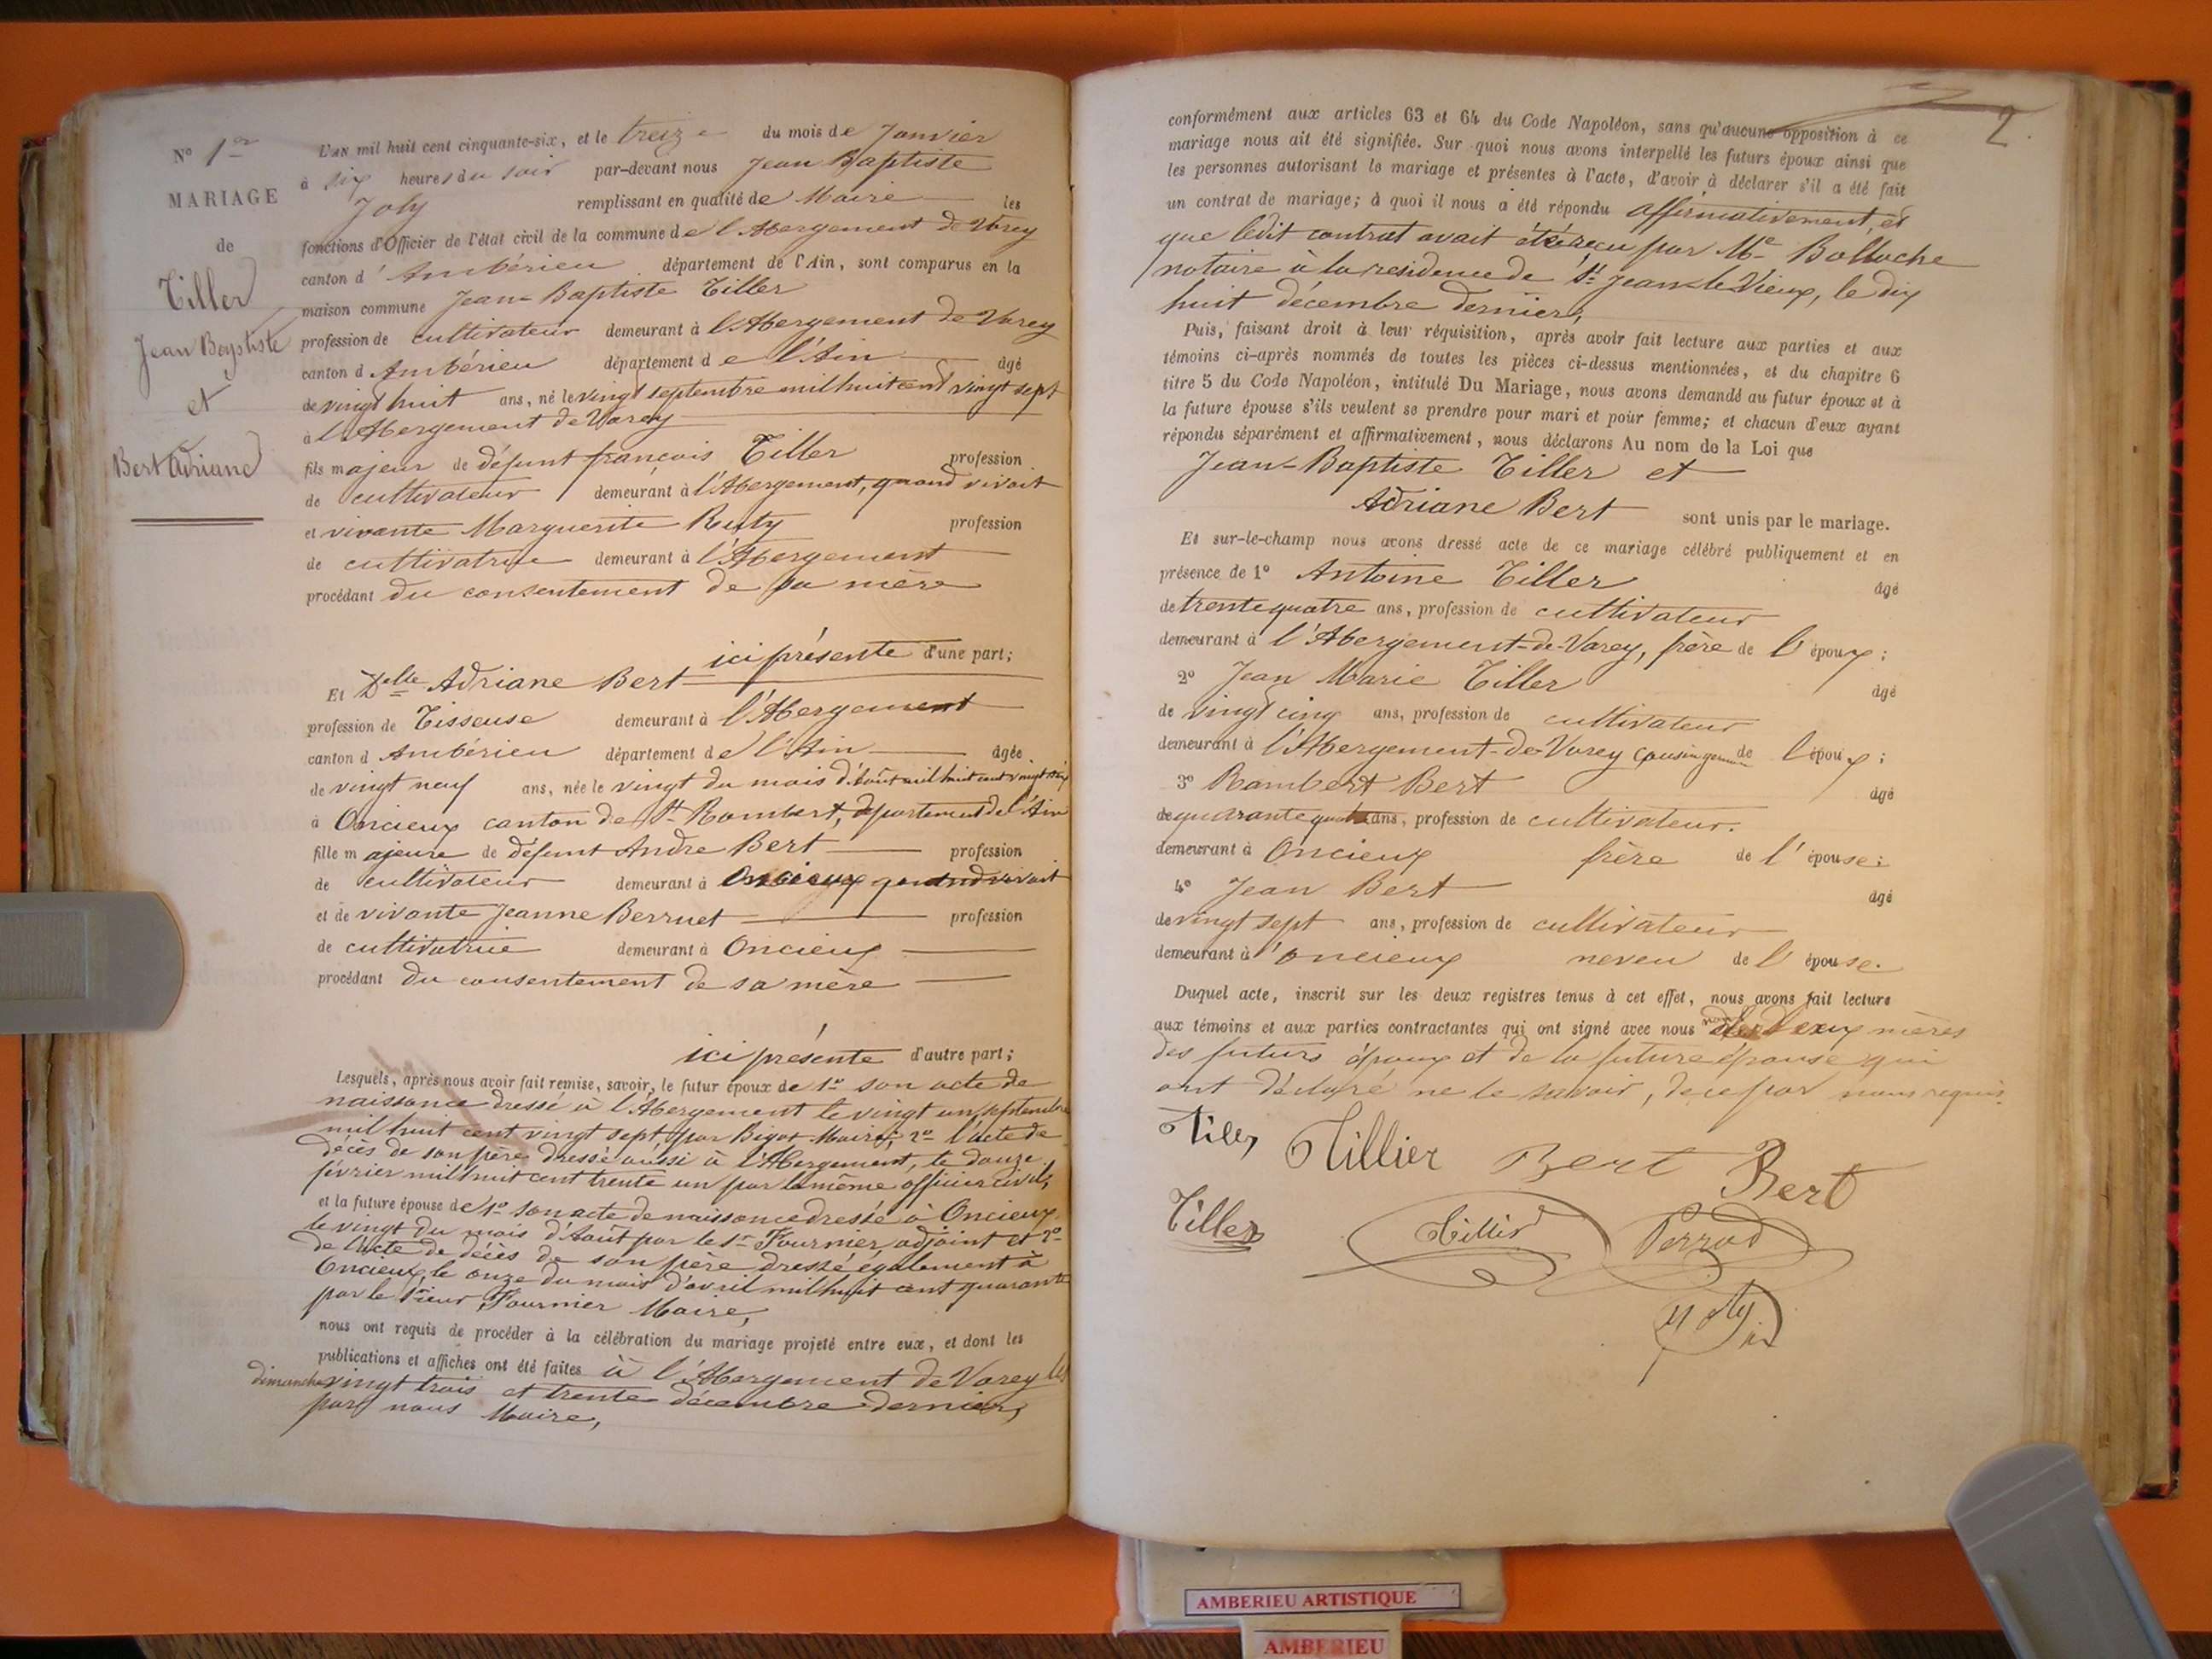 N° 1er
MARIAGE
de
Tiller
Jean Baptiste
et
Bert Adriane
L'AN mil huit cent cinquante-six, et le treize du mois de Janvier
à six heures du soir par-devant nous Jean Baptiste
Joly remplissant en qualité de Maire les
fonctions d'Officier de l'état civil de la commune de l'Abergement de Varey
canton d'Ambérieu département de l'Ain, sont comparus en la
maison commune Jean-Baptiste Tiller
profession de cultivateur demeurant à l'Abergement de Varey
canton d Ambérieu département de l'Ain âgé
de vingt huit ans, né le vingt septembre mil huit cent vingt sept
à l'Abergement de Varey
fils majeur de défunt françois Tiller profession
de cultivateur demeurant à l'Abergement, quand vivait
et vivante Marguerite Ruty profession
de cultivatrice demeurant à l'Abergement
procédant du consentement de sa mère
ici présente d'une part;
Et Delle Adriane Bert
profession de Tisseuse demeurant à l'Abergement
canton d Ambérieu département de l'Ain âgée
de vingt neuf ans, née le vingt du mois d'Août mil huit cent vingt six
à Oncieux canton de St Rambert, département de l'Ain
fille majeure de défunt André Bert profession
de cultivateur demeurant à Oncieux quand vivait
et de vivante Jeanne Berruet profession
de cultivatrice demeurant à Oncieux
procédant du consentement de sa mère
ici présente d'autre part;
Lesquels, après nous avoir fait remise, savoir, le futur époux de 1° son acte de
naissance dressé à l'Abergement le vingt un septembre
mil huit cent vingt sept, par Bigot Maire; 2° l'acte de
décès de son père dressé aussi à l'Abergement, le douze
février mil huit cent trente un par le même officier civil,
et la future épouse de 1° son acte de naissance dressé à Oncieux
le vingt du mois d'Août par le Sr Fournier, adjoint et 2°
de l'acte de décès de son père dressé également à
Oncieux, le onze du mois d'avril mil huit cent quarante
par le Sieur Fournier Maire,
nous ont requis de procéder à la célébration du mariage projeté entre eux, et dont les
publications et affiches ont été faites à l'Abergement de Varey les
dimanches vingt trois et trente décembre dernier,
par nous Maire,
2
conformément aux articles 63 et 64 du Code Napoléon, sans qu'aucune opposition à ce
mariage nous ait été signifiée. Sur quoi nous avons interpellé les futurs époux ainsi que
les personnes autorisant le mariage et présentes à l'acte, d'avoir à déclarer s'il a été fait
un contrat de mariage; à quoi il nous a été répondu affirmativement, et
que ledit contrat avait été reçu par Me Bollache
notaire à la résidence de St Jean-le-Vieux, le dix
huit décembre dernier,
Puis, faisant droit à leur réquisition, après avoir fait lecture aux parties et aux
témoins ci-après nommés de toutes les pièces ci-dessus mentionnées, et du chapitre 6
titre 5 du Code Napoléon, intitulé Du Mariage, nous avons demandé au futur époux et à
la future épouse s'ils veulent se prendre pour mari et pour femme; et chacun d'eux ayant
répondu séparément et affirmativement, nous déclarons Au nom de la Loi que
Jean-Baptiste Tiller et
Adriane Bert sont unis par le mariage.
Et sur-le-champ nous avons dressé acte de ce mariage célébré publiquement et en
présence de 1° Antoine Tiller âgé
de trente quatre ans, profession de cultivateur
demeurant à l'Abergement-de-Varey, frère de l'époux;
2° Jean Marie Tiller âgé
de vingt cinq ans, profession de cultivateur
demeurant à l'Abergement-de-Varey cousin germain de l'époux;
3° Rambert Bert âgé
de quarante ans, profession de cultivateur.
demeurant à Oncieux frère de l'épouse;
4° Jean Bert âgé
de vingt sept ans, profession de cultivateur
demeurant à Oncieux neveu de l'épouse.
Duquel acte, inscrit sur les deux registres tenus à cet effet, nous avons fait lecture
aux témoins et aux parties contractantes qui ont signé avec nous non les deux mères
des futurs époux et de la future épouse qui
ont déclaré ne le savoir, de ce par nous requis.
Tiller Tillier Bert Bert
Tiller Tillier Perrod
Joly
AMBERIEU ARTISTIQUE
AMBERIEU